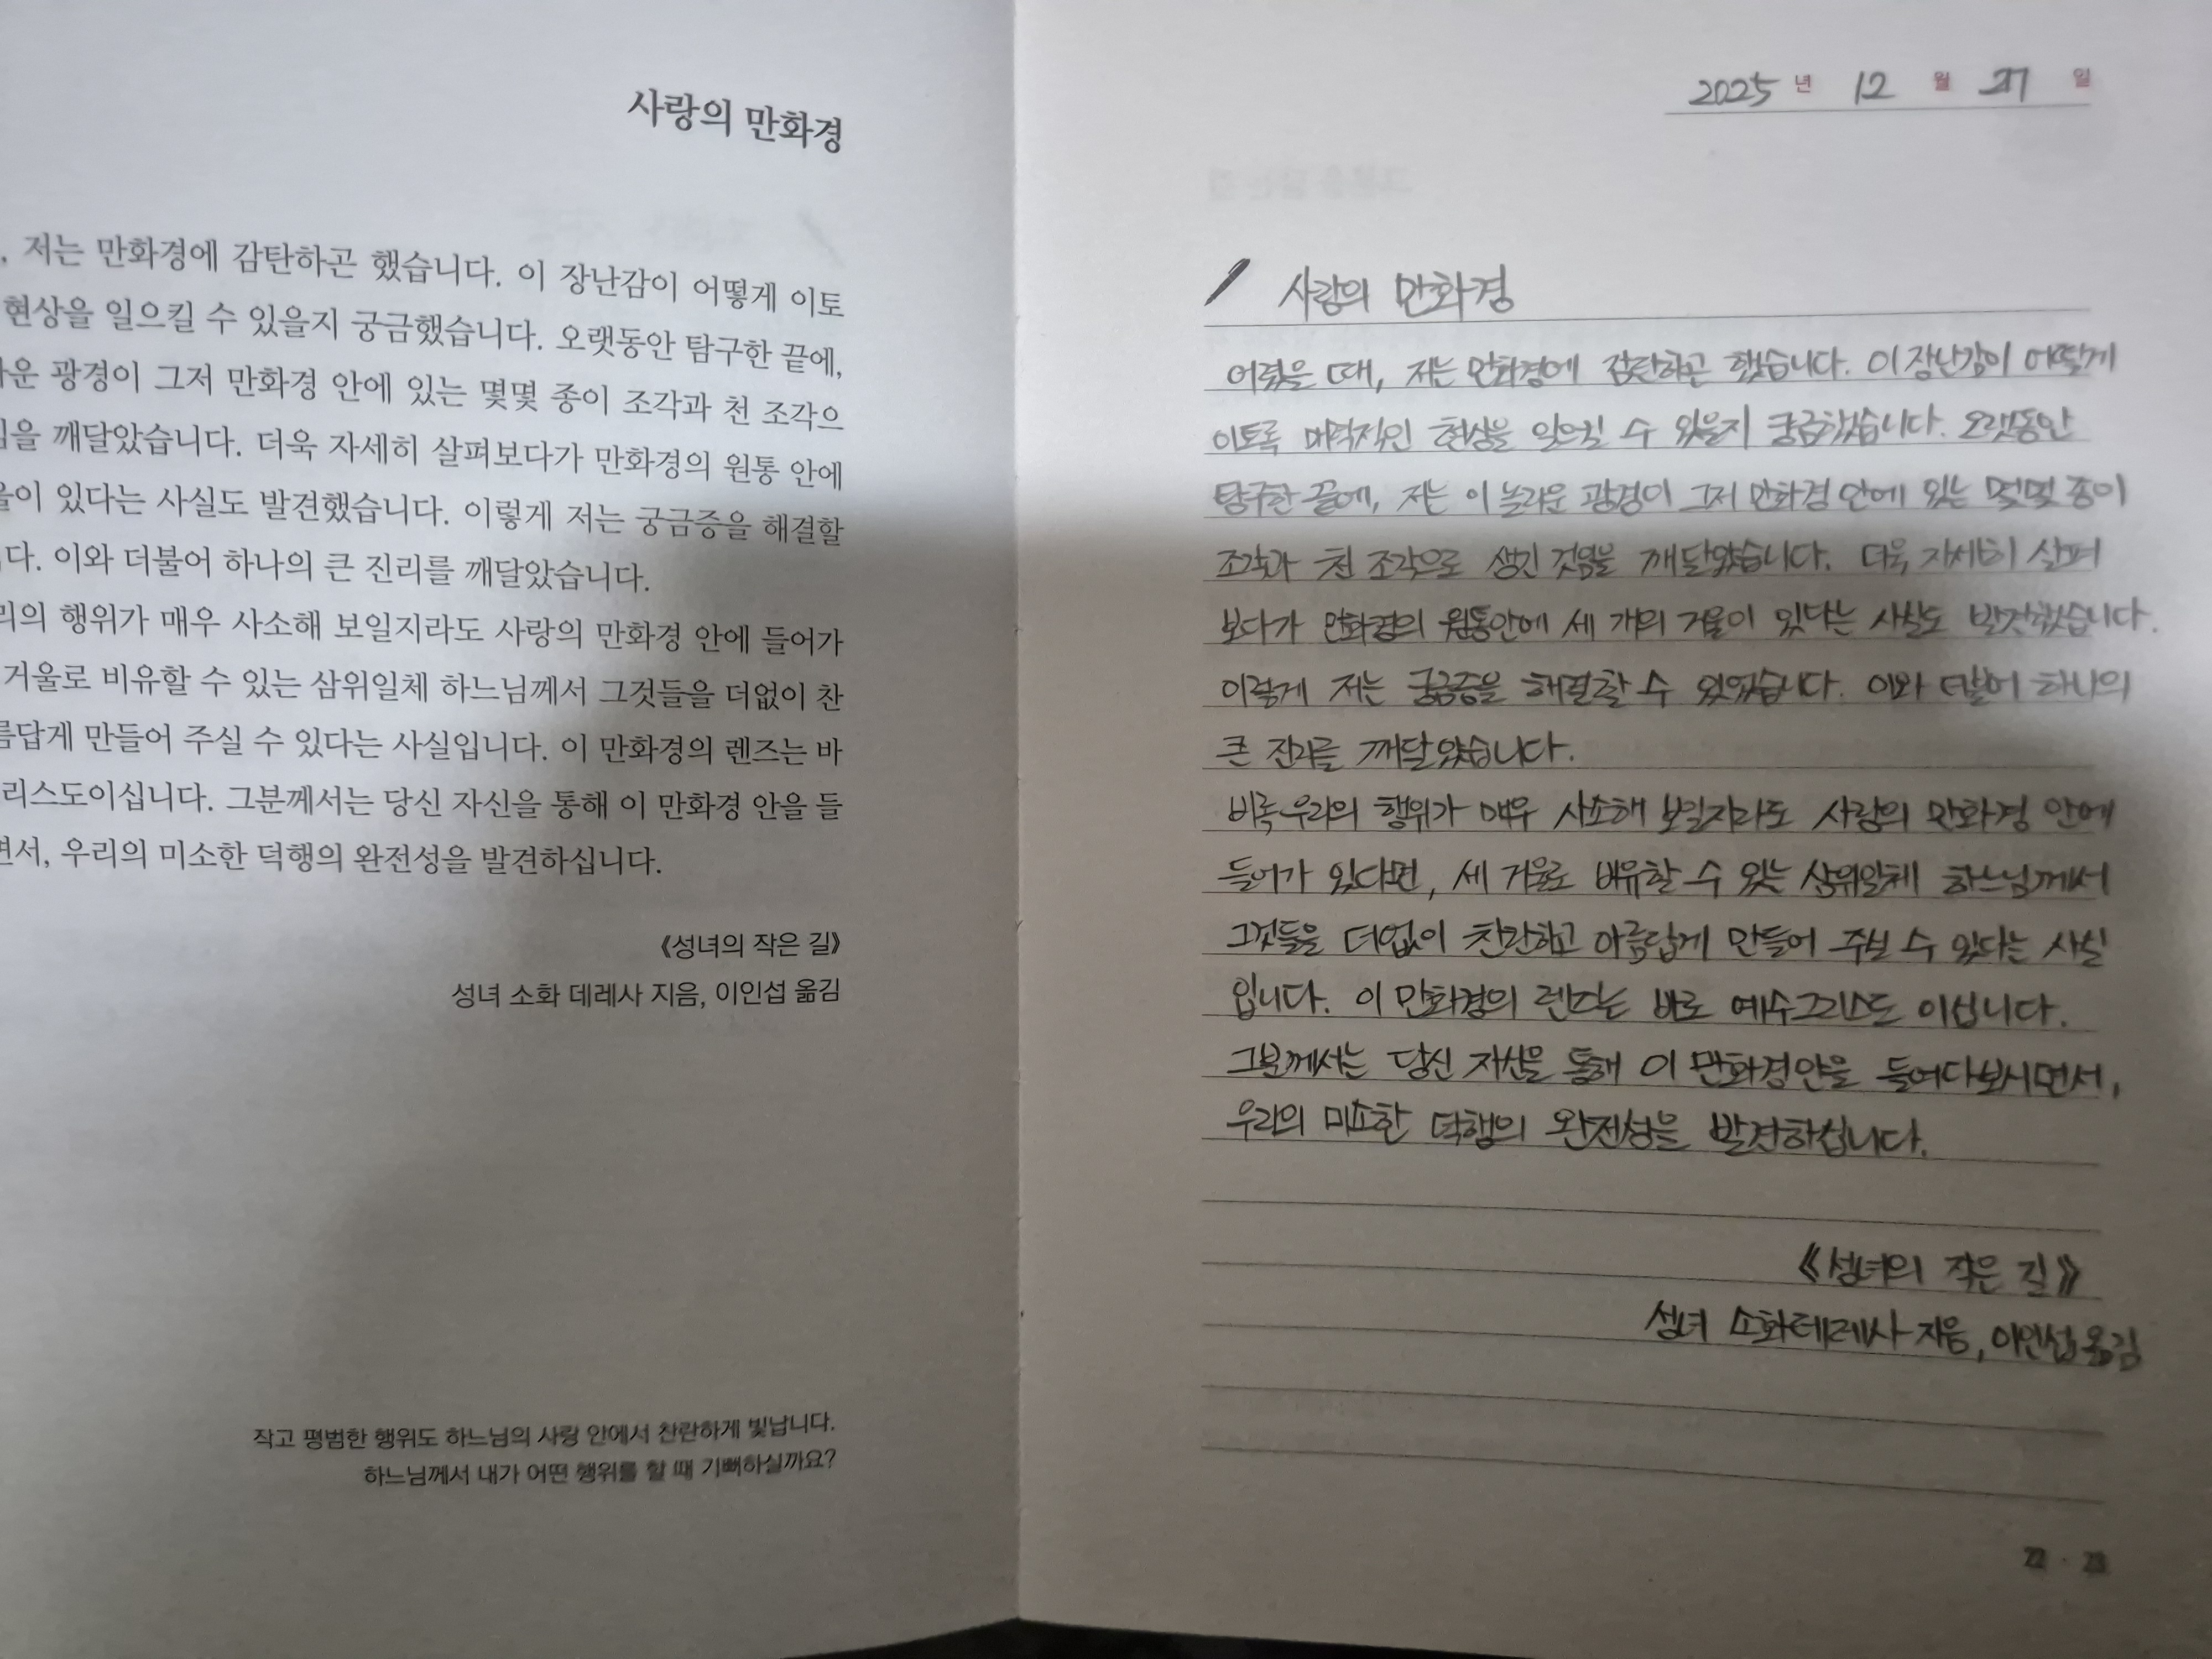 사랑의 만화경
, 저는 만화경에 감탄하곤 했습니다. 이 장난감이 어떻게 이토
현상을 일으킬 수 있을지 궁금했습니다. 오랫동안 탐구한 끝에,
운 광경이 그저 만화경 안에 있는 몇몇 종이 조각과 천 조각으
을 깨달았습니다. 더욱 자세히 살펴보다가 만화경의 원통 안에
울이 있다는 사실도 발견했습니다. 이렇게 저는 궁금증을 해결할
다. 이와 더불어 하나의 큰 진리를 깨달았습니다.
리의 행위가 매우 사소해 보일지라도 사랑의 만화경 안에 들어가
거울로 비유할 수 있는 삼위일체 하느님께서 그것들을 더없이 찬
름답게 만들어 주실 수 있다는 사실입니다. 이 만화경의 렌즈는 바
리스도이십니다. 그분께서는 당신 자신을 통해 이 만화경 안을 들
면서, 우리의 미소한 덕행의 완전성을 발견하십니다.
《성녀의 작은 길》
성녀 소화 데레사 지음, 이인섭 옮김
작고 평범한 행위도 하느님의 사랑 안에서 찬란하게 빛납니다.
하느님께서 내가 어떤 행위를 할 때 기뻐하실까요?
2025 년 12 월 일
사랑의 만화경
어렸을 때, 저는 만화경에 감탄하곤 했습니다. 이 장난감이 어떻게
이토록 매력적인 현상을 일으킬 수 있을지 궁금했습니다. 오랫동안
탐구한 끝에, 저는 이 놀라운 광경이 그저 만화경 안에 있는 몇몇 종이
조각과 천 조각으로 생긴 것임을 깨달았습니다. 더욱 자세히 살펴
보다가 만화경의 원통안에 세 개의 거울이 있다는 사실도 발견했습니다.
이렇게 저는 궁금증을 해결할 수 있었습니다. 이와 더불어 하나의
큰 진리를 깨달았습니다.
비록 우리의 행위가 매우 사소해 보일지라도 사랑의 만화경 안에
들어가 있다면, 세 거울로 비유할 수 있는 삼위일체 하느님께서
그것들을 더없이 찬란하고 아름답게 만들어 주실 수 있다는 사실
입니다. 이 만화경의 렌즈는 바로 예수그리스도 이십니다.
그분께서는 당신 자신을 통해 이 만화경안을 들여다보시면서,
우리의 미소한 덕행의 완전성을 발견하십니다.
《성녀의 작은 길》
성녀 소화데레사 지음, 이인섭 옮김
22 · 23